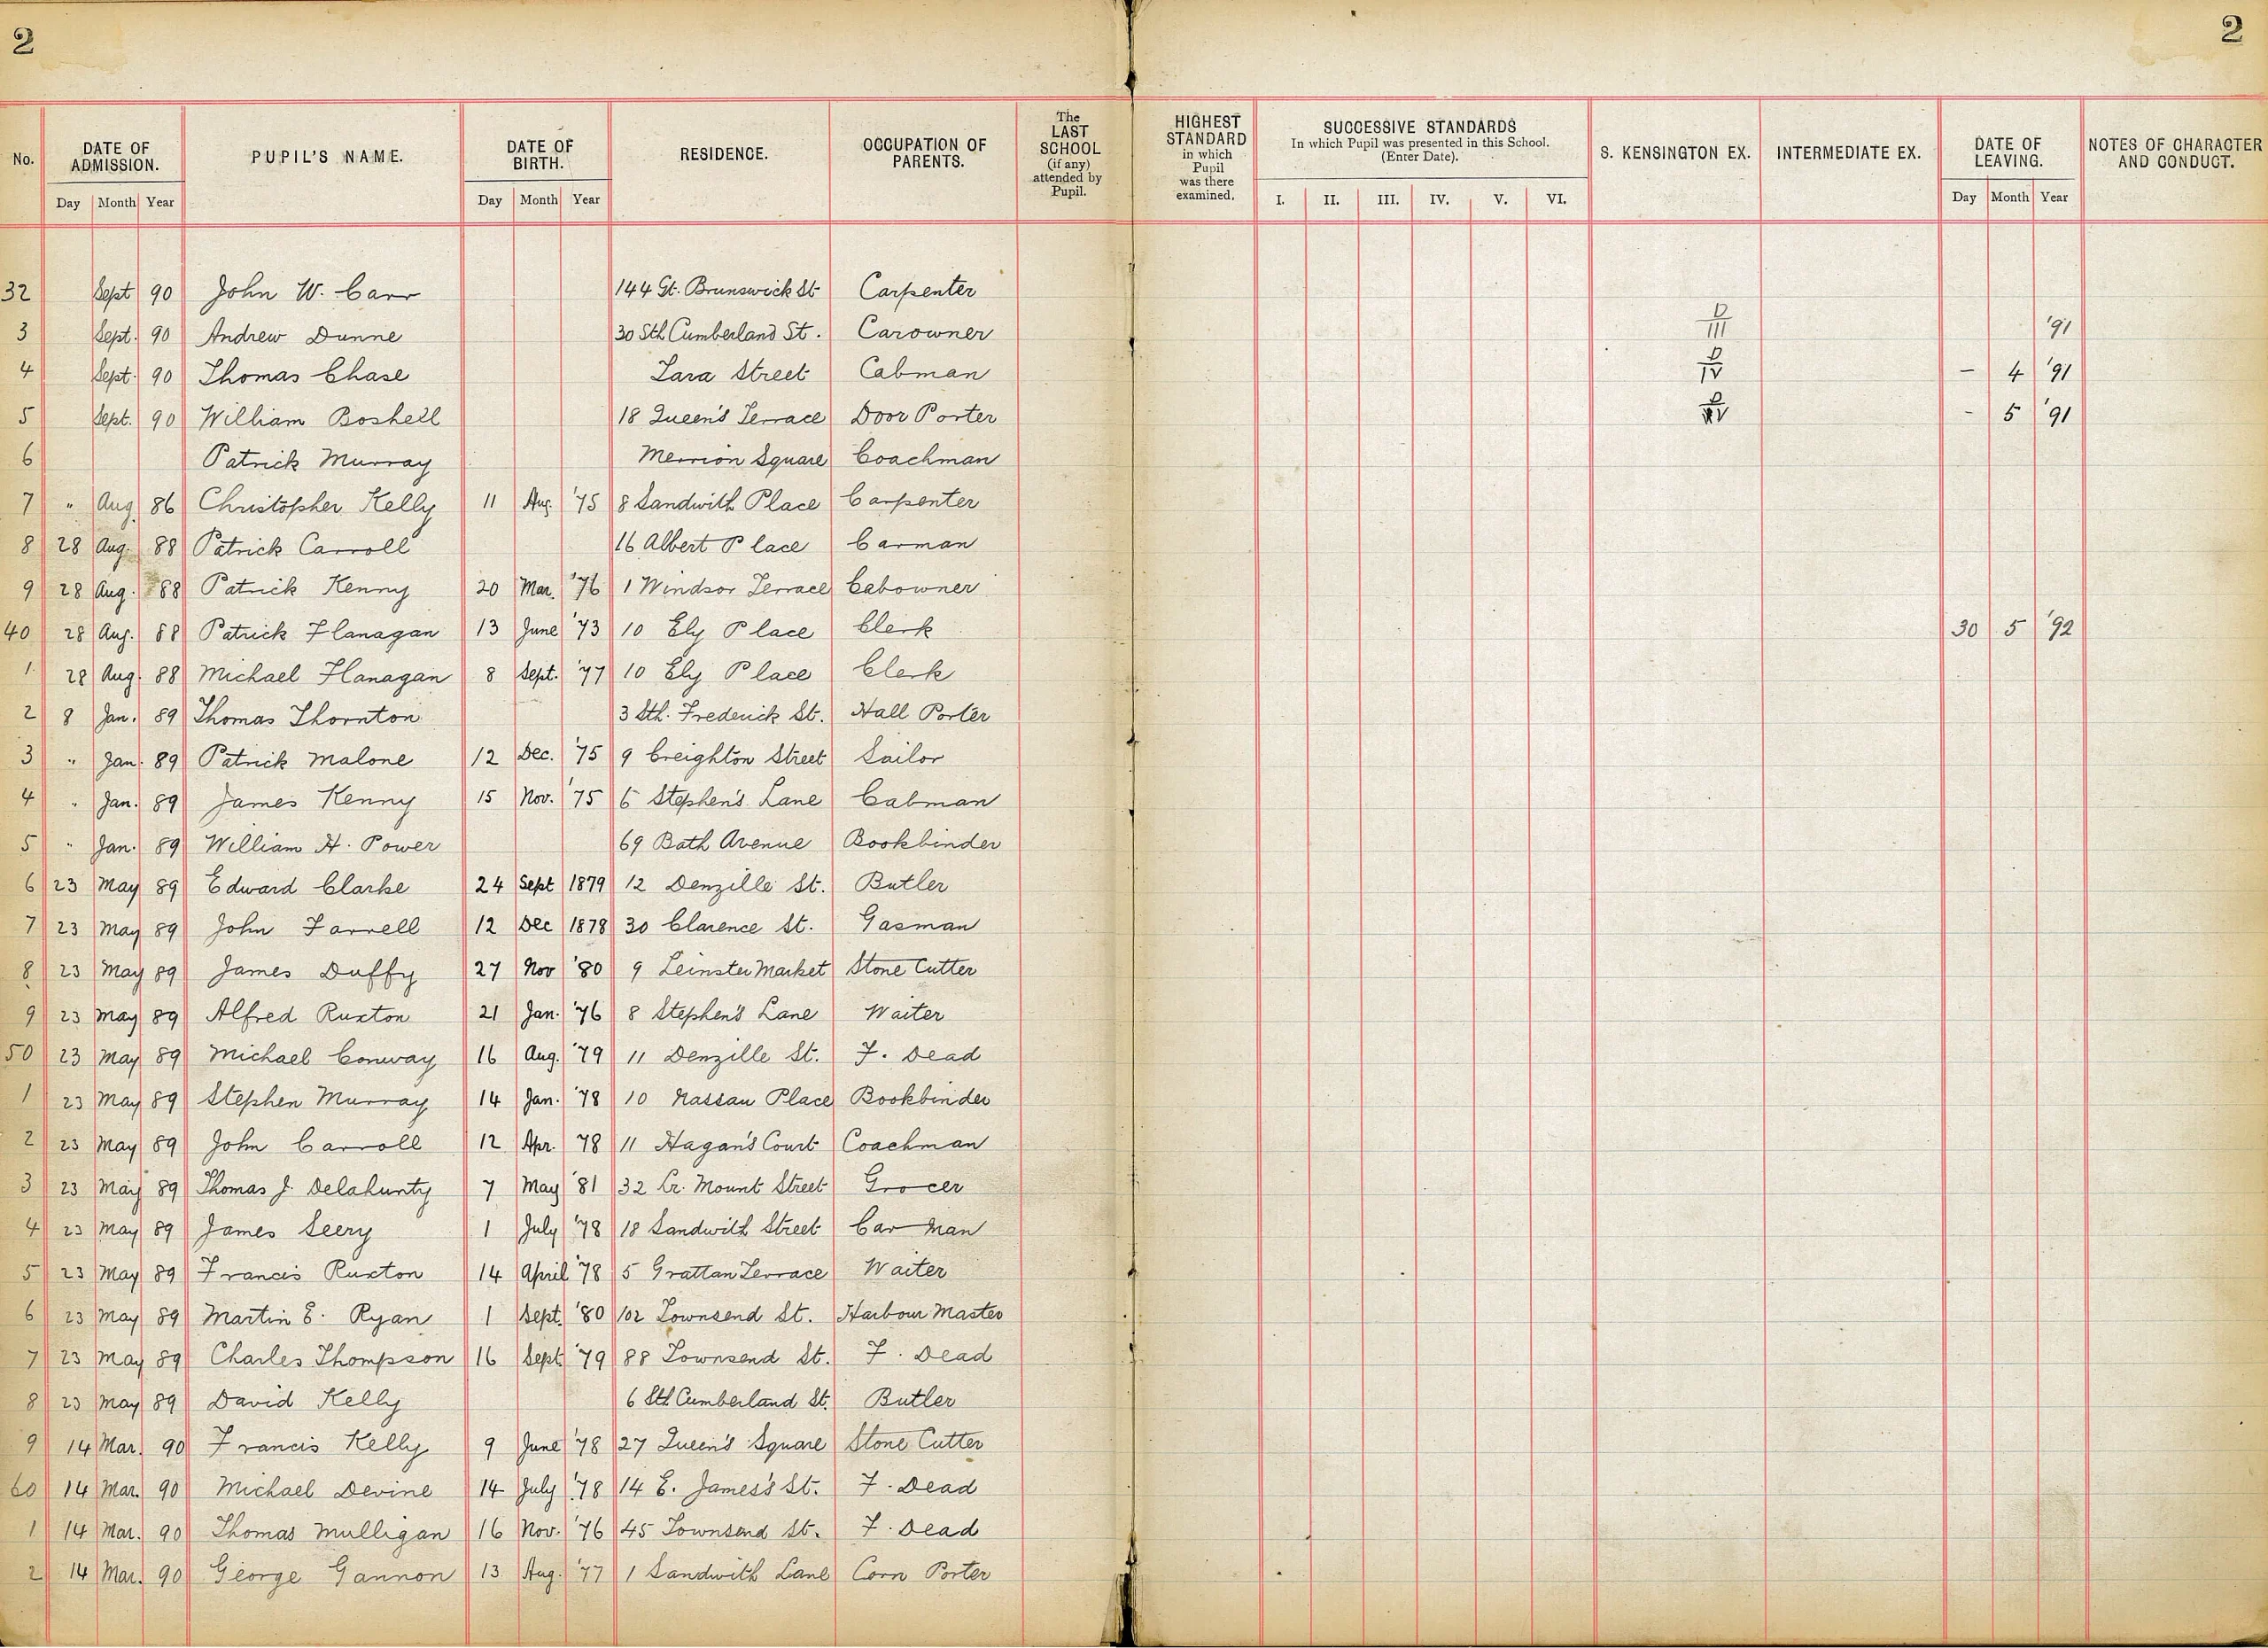 2 2
No. DATE OF ADMISSION. PUPIL'S NAME. DATE OF BIRTH. RESIDENCE. OCCUPATION OF PARENTS. The LAST SCHOOL (if any) attended by Pupil. HIGHEST STANDARD in which Pupil was there examined. SUCCESSIVE STANDARDS In which Pupil was presented in this School. (Enter Date). S. KENSINGTON EX. INTERMEDIATE EX. DATE OF LEAVING. NOTES OF CHARACTER AND CONDUCT.
Day Month Year Day Month Year I. II. III. IV. V. VI. Day Month Year
32 Sept 90 John W. Carr 144 Gt. Brunswick St Carpenter
3 Sept. 90 Andrew Dunne 30 Sth Cumberland St. Carowner D III '91
4 Sept. 90 Thomas Chase Tara Street Cabman D IV – 4 '91
5 Sept. 90 William Boshell 18 Queen's Terrace Door Porter D IV - 5 '91
6 Patrick Murray Merrion Square Coachman
7 " Aug. 86 Christopher Kelly 11 Aug. '75 8 Sandwith Place Carpenter
8 28 Aug. 88 Patrick Carroll 16 Albert Place Carman
9 28 Aug. 88 Patrick Kenny 20 Mar. '76 1 Windsor Terrace Cabowner
40 28 Aug. 88 Patrick Flanagan 13 June '73 10 Ely Place Clerk 30 5 '92
1 28 Aug. 88 Michael Flanagan 8 Sept. '77 10 Ely Place Clerk
2 8 Jan. 89 Thomas Thornton 3 Sth. Frederick St. Hall Porter
3 " Jan. 89 Patrick Malone 12 Dec. '75 9 Creighton Street Sailor
4 " Jan. 89 James Kenny 15 Nov. '75 6 Stephen's Lane Cabman
5 " Jan. 89 William H. Power 69 Bath Avenue Bookbinder
6 23 May 89 Edward Clarke 24 Sept 1879 12 Denzille St. Butler
7 23 May 89 John Farrell 12 Dec 1878 30 Clarence St. Gasman
8 23 May 89 James Duffy 27 Nov '80 9 Leinster Market Stone Cutter
9 23 May 89 Alfred Ruxton 21 Jan. '76 8 Stephen's Lane Waiter
50 23 May 89 Michael Conway 16 Aug. '79 11 Denzille St. F. Dead
1 23 May 89 Stephen Murray 14 Jan. '78 10 Nassau Place Bookbinder
2 23 May 89 John Carroll 12 Apr. '78 11 Hagan's Court Coachman
3 23 May 89 Thomas J. Delahunty 7 May '81 32 Lr. Mount Street Grocer
4 23 May 89 James Seery 1 July '78 18 Sandwith Street Car Man
5 23 May 89 Francis Ruxton 14 April '78 5 Grattan Terrace Waiter
6 23 May 89 Martin E. Ryan 1 Sept. '80 102 Townsend St. Harbour Master
7 23 May 89 Charles Thompson 16 Sept '79 88 Townsend St. F. Dead
8 23 May 89 David Kelly 6 Sth Cumberland St. Butler
9 14 Mar. 90 Francis Kelly 9 June '78 27 Queen's Square Stone Cutter
60 14 Mar. 90 Michael Devine 14 July '78 14 E. James's St. F. Dead
1 14 Mar. 90 Thomas Mulligan 16 Nov. '76 45 Townsend St. F. Dead
2 14 Mar. 90 George Gannon 13 Aug. '77 1 Sandwith Lane Corn Porter